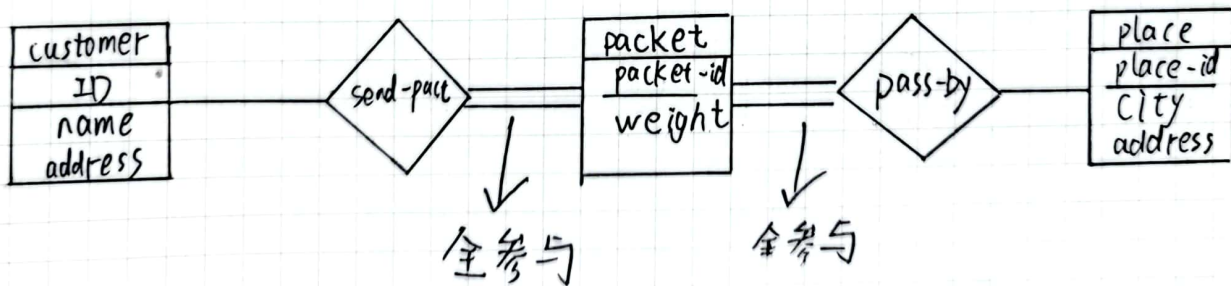 customer
ID
name
address
send-pact
packet
packet-id
weight
pass-by
place
place-id
City
address
全参与
全参与